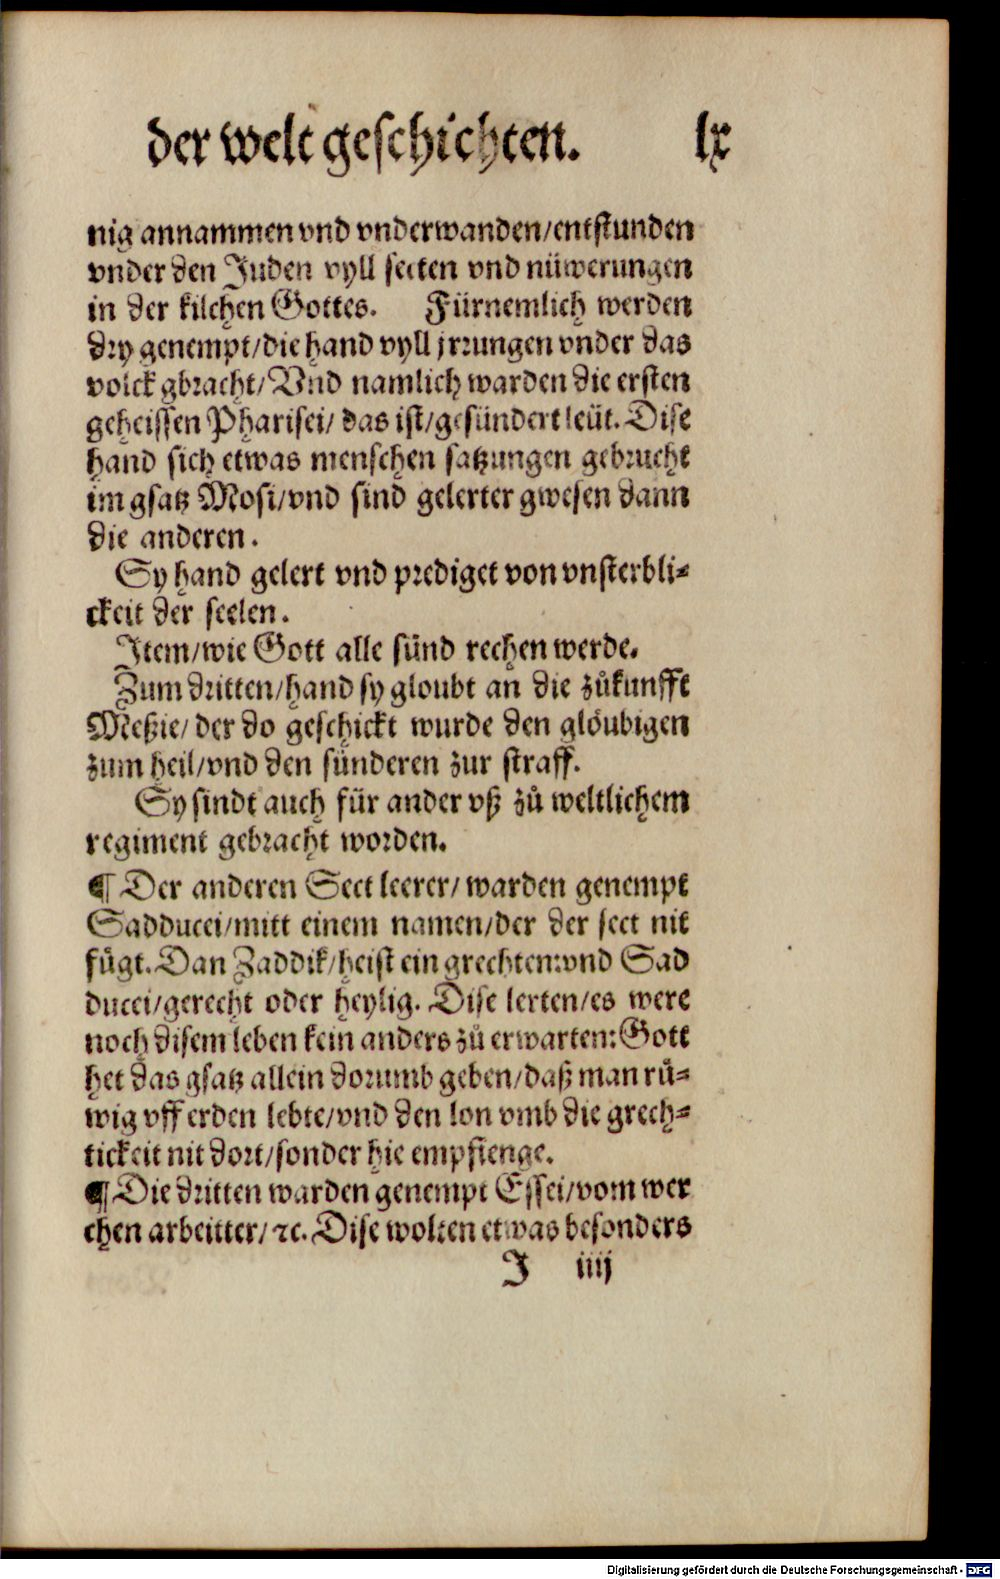 der welt geschichten. lx
nig annammen vnd vnderwanden/entstunden
vnder den Juden vyll secten vnd nüwerungen
in der kilchen Gottes. Fürnemlich werden
dry genempt/die hand vyll jrrungen vnder das
volck gbracht/Vnd namlich warden die ersten
geheissen Pharisei/ das ist/gesündert leüt. Dise
hand sich etwas menschen satzungen gebrucht
im gsatz Mosi/vnd sind gelerter gwesen dann
die anderen.
Sy hand gelert vnd prediget von vnsterbli-
ckeit der seelen.
Item/wie Gott alle sünd rechen werde.
Zum dritten/hand sy gloubt an die zůkunfft
Meßie/ der do geschickt wurde den glöubigen
zum heil/vnd den sünderen zur straff.
Sy sindt auch für ander vß zů weltlichem
regiment gebracht worden.
¶ Der anderen Sect leerer/ warden genempt
Sadducei/mitt einem namen/der der sect nit
fůgt. Dan Zaddik/heist ein grechten:vnd Sad
ducei/gerecht oder heylig. Dise lerten/es were
noch disem leben kein anders zů erwarten: Gott
het das gsatz allein dorumb geben/daß man rů-
wig vff erden lebte/vnd den lon vmb die grech-
tickeit nit dort/sonder hie empfienge.
¶ Die dritten warden genempt Essei/vom wer
chen arbeitter/ꝛc. Dise wolten etwas besonders
J iiij
Digitalisierung gefördert durch die Deutsche Forschungsgemeinschaft - DFG